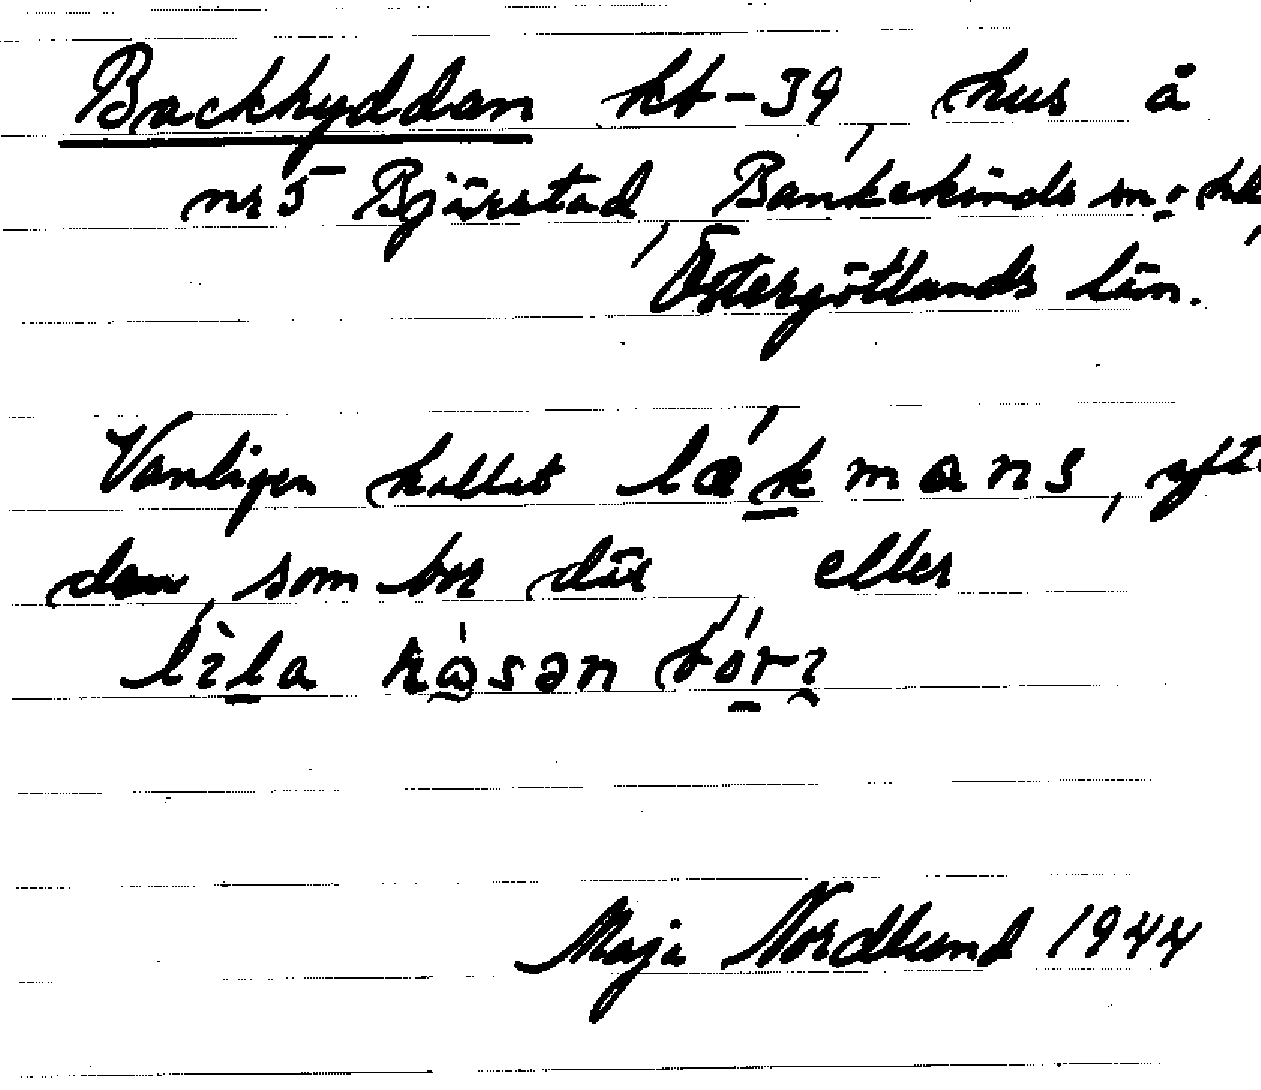 Backhyddan kb-39, hus å
nr 5 Bjärstad, Bankekinds sn o hd,
Östergötlands län.
Vanligen kallat läkmans, eft.
den som bor där eller
lila råsen bóri
Maja Nordlund 1944